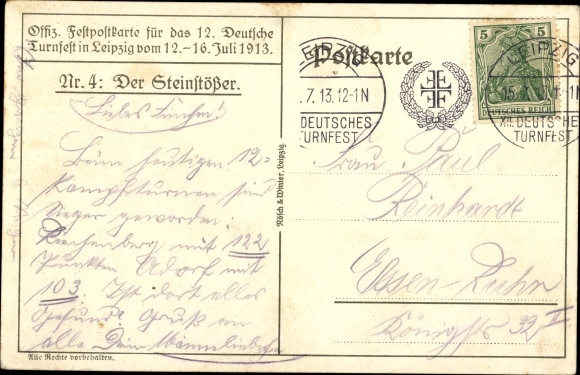 Offiz. Festpostkarte für das 12. Deutsche
Turnfest in Leipzig vom 12.–16. Juli 1913.
Nr. 4: Der Steinstößer.
Liebes
Beim heutigen 12-
Kampfturnen sind
Sieger geworden:
mit 122
Punkten Adorf mit
103. Ist dort alles
Gesund? Gruß an
alle Dein
Alle Rechte vorbehalten.
Rösch & Winter, Leipzig.
Postkarte
LEIPZIG
.7.13.12-1N
DEUTSCHES
TURNFEST
5 5
DEUTSCHES REICH
LEIPZIG
15.7. 12-1N
XII. DEUTSCHES
TURNFEST
Frau Paul
Reinhardt
Essen-Ruhr
32 II